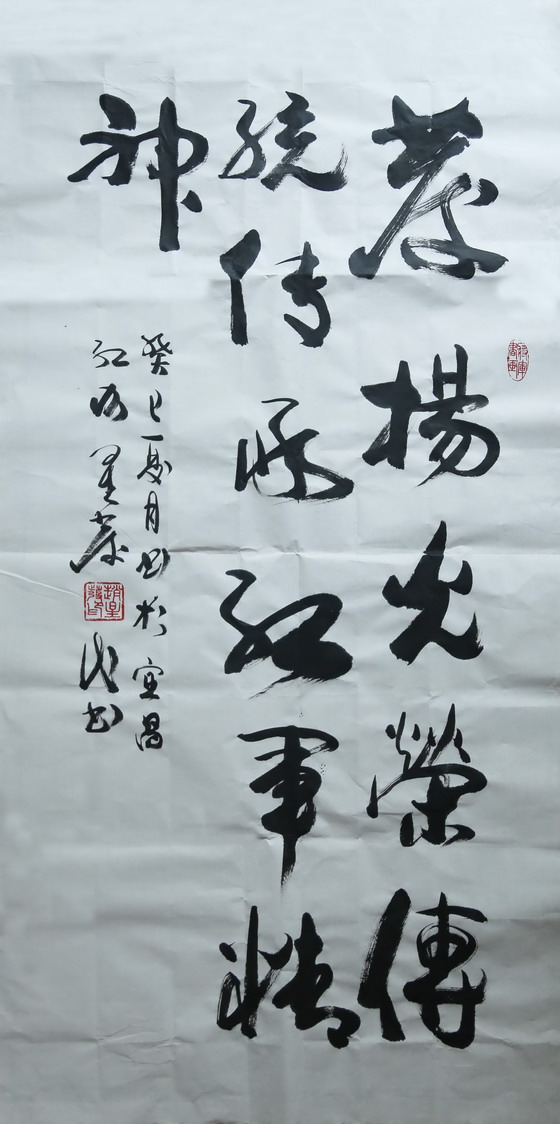 發揚光榮傳
統传承红軍精
神
癸巳夏月书於宜昌
星發
书